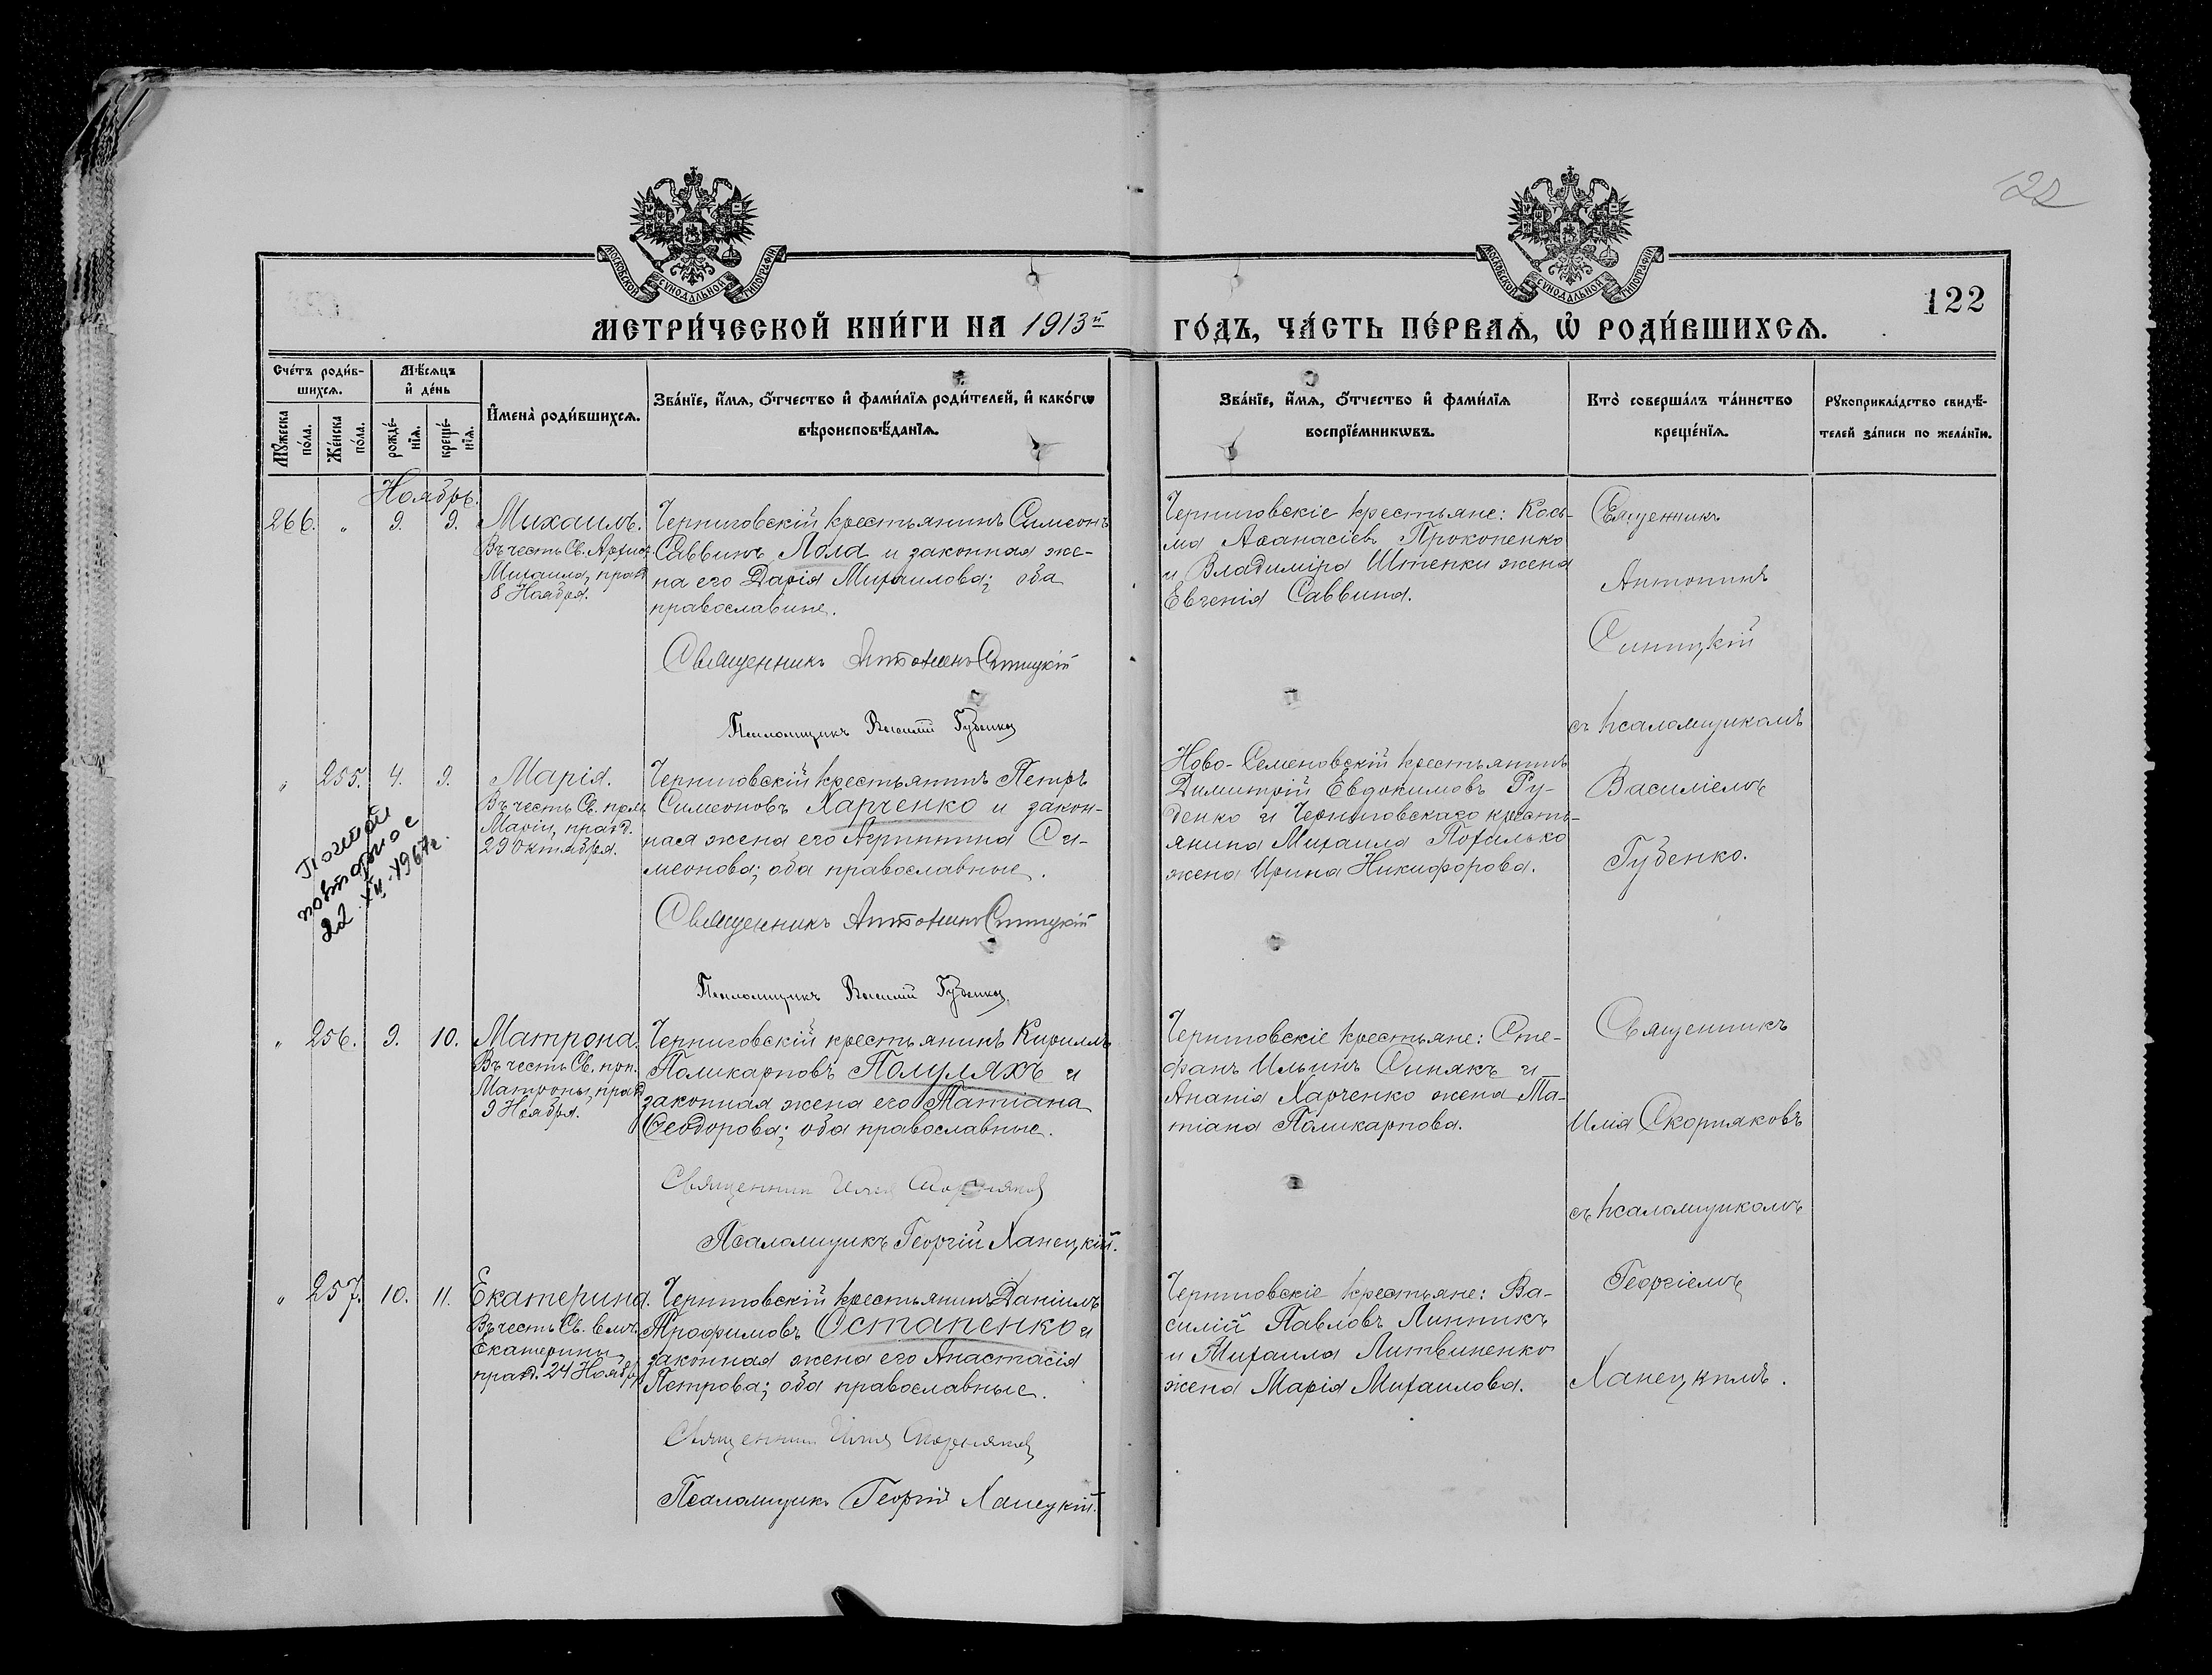 122
МОСКОВСКОЙ СУНОДАЛЬНОЙ ТИПОГРАФІИ
МОСКОВСКОЙ СУНОДАЛЬНОЙ ТИПОГРАФІИ
122
МЕТРИ́ЧЕСКОЙ КНИ́ГИ НА 1913й
ГО́ДЪ, ЧА́СТЬ ПЕ́РВАѦ, Ѡ РОДИ́ВШИХСѦ.
Сче́тъ роди́в-
шихсѧ.
Мѣ́сѧцъ
и҆ де́нь
Мꙋ́жеска
по́ла.
Же́нска
по́ла.
рожде́-
нїѧ.
креще́-
нїѧ.
И҆мена̀ роди́вшихсѧ.
Зва́нїе, и҆́мѧ, ѻ҆́тчество и҆ фами́лїѧ роди́телей, и҆ како́гѡ
вѣроисповѣ́данїѧ.
Зва́нїе, и҆́мѧ, ѻ҆́тчество и҆ фами́лїѧ
воспрїе́мникѡвъ.
Кто̀ соверша́лъ та́инство
креще́нїѧ.
Рꙋкоприкла́дство свидѣ́-
телей за́писи по жела́нїю.
Ноябрь.
266. " 9. 9. Михаилъ.
Въ честь Св. Архист.
Михаила, празд.
8 Ноября.
Черниговскій крестьянинъ Симеонъ
Саввинъ Лола и законная же-
на его Дарія Михаилова; оба
православные.
Священникъ Антонинъ Синицкій
Псаломщикъ Василій Губенко
Черниговскіе крестьяне: Кось-
ма Аѳанасіевъ Прокопенко
и Владиміра Штепки жена
Евгенія Саввина.
Священникъ
Антонинъ
Синицкій
съ псаломщикомъ
Василіемъ
Губенко.
" 255. 4. 9. Марія.
Въ честь Св. прп.
Маріи, празд.
29 октября.
повторное
22.XII.1967г.
Черниговскій крестьянинъ Петръ
Симеоновъ Харченко и закон-
ная жена его Агриппина Си-
меонова; оба православные.
Священникъ Антонинъ Синицкій
Псаломщикъ Василій Губенко
Ново-Семеновскій крестьянинъ
Димитрій Евдокимовъ Ру-
денко и Черниговскаго кресть-
янина Михаила Похилько
жена Ирина Никифорова.
" 256. 9. 10. Матрона.
Въ честь Св. прп.
Матроны, празд.
9 Ноября.
Черниговскій крестьянинъ Кириллъ
Поликарповъ Полуляхъ и
законная жена его Татіана
Ѳеодорова; оба православные.
Священникъ Илія Скорняковъ
Псаломщикъ Георгій Ханецкій.
Черниговскіе крестьяне: Сте-
фанъ Ильинъ Синякъ и
Ананія Харченко жена Та-
тіана Поликарпова.
Священникъ
Илія Скорняковъ
съ псаломщикомъ
Георгіемъ
Ханецкимъ.
" 257. 10. 11. Екатерина.
Въ честь Св. влмч.
Екатерины,
празд. 24 Ноября
Черниговскій крестьянинъ Даніилъ
Трофимовъ Остапенко и
законная жена его Анастасія
Петрова; оба православные.
Священникъ Илія Скорняковъ
Псаломщикъ Георгій Ханецкій.
Черниговскіе крестьяне: Ва-
силій Павловъ Линникъ
и Михаила Литвиненко
жена Марія Михаилова.